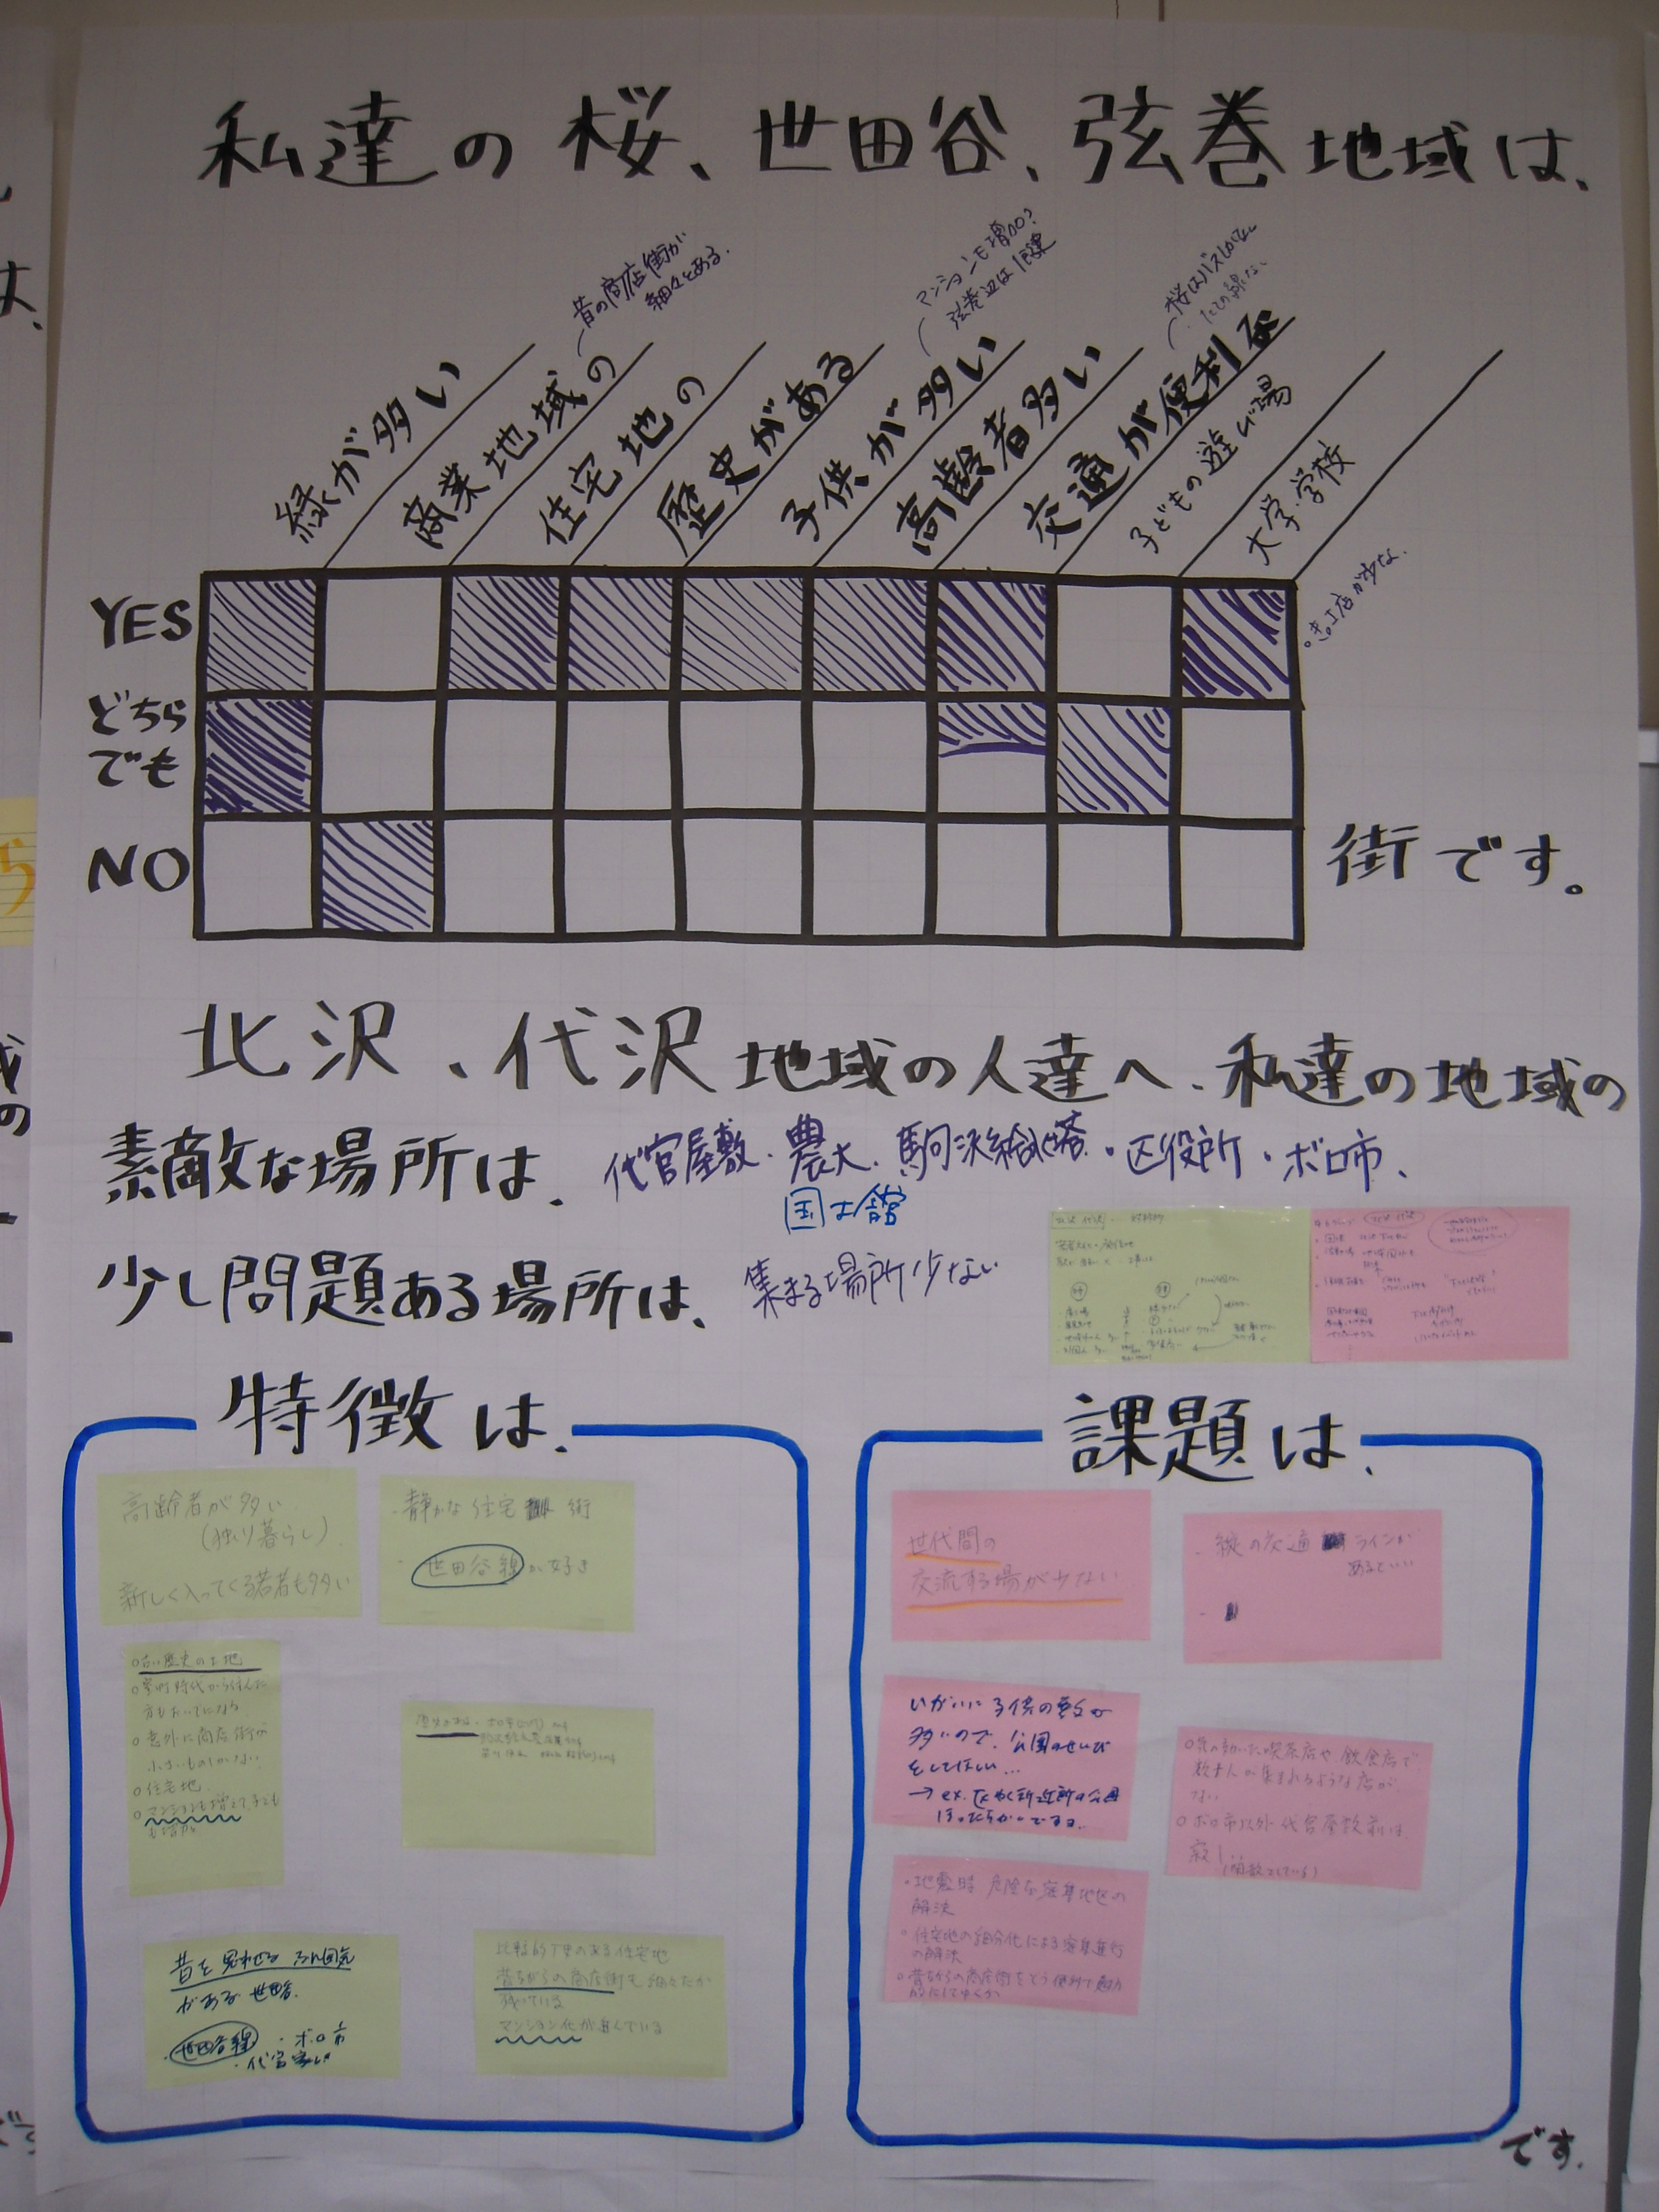 私達の桜、世田谷、弦巻地域は、
昔の商店街が
細々とある。
マンションも増加?
弦巻辺は
桜はバスしかない
緑が多い
商業地域の
住宅地の
歴史がある
子供が多い
高齢者多い
交通が便利な
子どもの遊び場
大学・学校
店が少な
YES
どちら
でも
NO
街です。
北沢、代沢地域の人達へ、私達の地域の
素敵な場所は、代官屋敷・農大・駒沢給水塔・区役所・ボロ市、
国士舘
少し問題ある場所は、集まる場所少ない
北沢 代沢
特徴は、
高齢者が多い
(独り暮らし)
新しく入ってくる若者も多い
・静かな住宅 街
・世田谷線が好き
○古い歴史の土地
○室町時代から住んだ
方もおいでになる
○意外に商店街が
小さいものしかない
○住宅地
○マンションも増えて子ども
も増加
昔を思わせる ふん囲気
がある 世田谷
・世田谷線 ・ボロ市
・代官
比較的 のある住宅地
昔ながらの商店街も細々だが
残っている
マンション化が進んでいる
課題は、
世代間の
交流する場が少ない
- 縦の交通 ラインが
あるといい
-
いがいに子供の数が
多いので、公園のせいび
をしてほしい…
→ex. 区役所近所の公園
○気の効いた喫茶店や、飲食店で
数十人が集まれるような店が
ない
○ボロ市以外 代官屋敷前は、
寂し
・地震時 危険な密集地区の
解決
・住宅地の細分化による密集進行
の解決
○昔ながらの商店街をどう便利で魅力
的にしてゆくか
です。